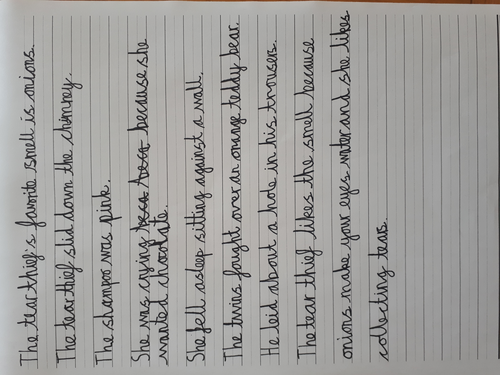 The tear thief's favorite smell is onions.
The tear thief slid down the chimney.
The shampoo was pink.
She was crying beca beca because she
wanted chocolate.
She fell asleep sitting against a wall.
The twins fought over an orange teddy bear.
He leid about a hole in his trousers.
The tear thief likes the smell because
onions make your eyes water and she likes
collecting tears.